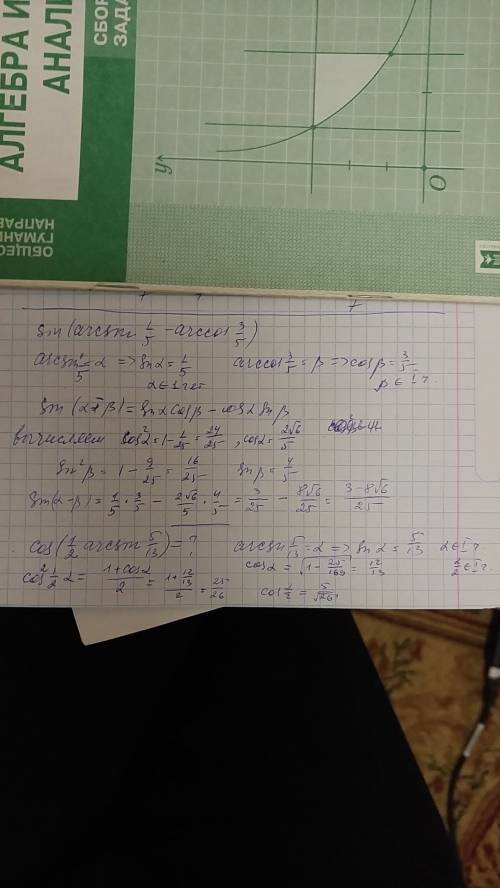 АЛГЕБРА И
АНАЛИ
СБОР
ЗАДА
ОБЩЕС
ГУМАНИ
НАПРАВ
y
O
sin(arcsin 1/5 - arccos 3/5)
arcsin 1/5 = α => sin α = 1/5    arccos 3/5 = β => cos β = 3/5
α ∈ I чет    β ∈ I ч.
sin(α-β) = sin α cos β - cos α sin β
вычисляем cos²α = 1 - 1/25 = 24/25, cos α = 2√6/5
sin²β = 1 - 9/25 = 16/25    sin β = 4/5
sin(α-β) = 1/5 · 3/5 - 2√6/5 · 4/5 = 3/25 - 8√6/25 = (3-8√6)/25
cos(1/2 arcsin 5/13) = ?    arcsin 5/13 = α => sin α = 5/13    α ∈ I ч.
cos² 1/2 α = (1+cos α)/2 = (1+12/13)/2 = 25/26    cos α = √(1 - 25/169) = 12/13    α/2 ∈ I ч.
cos α/2 = 5/√26